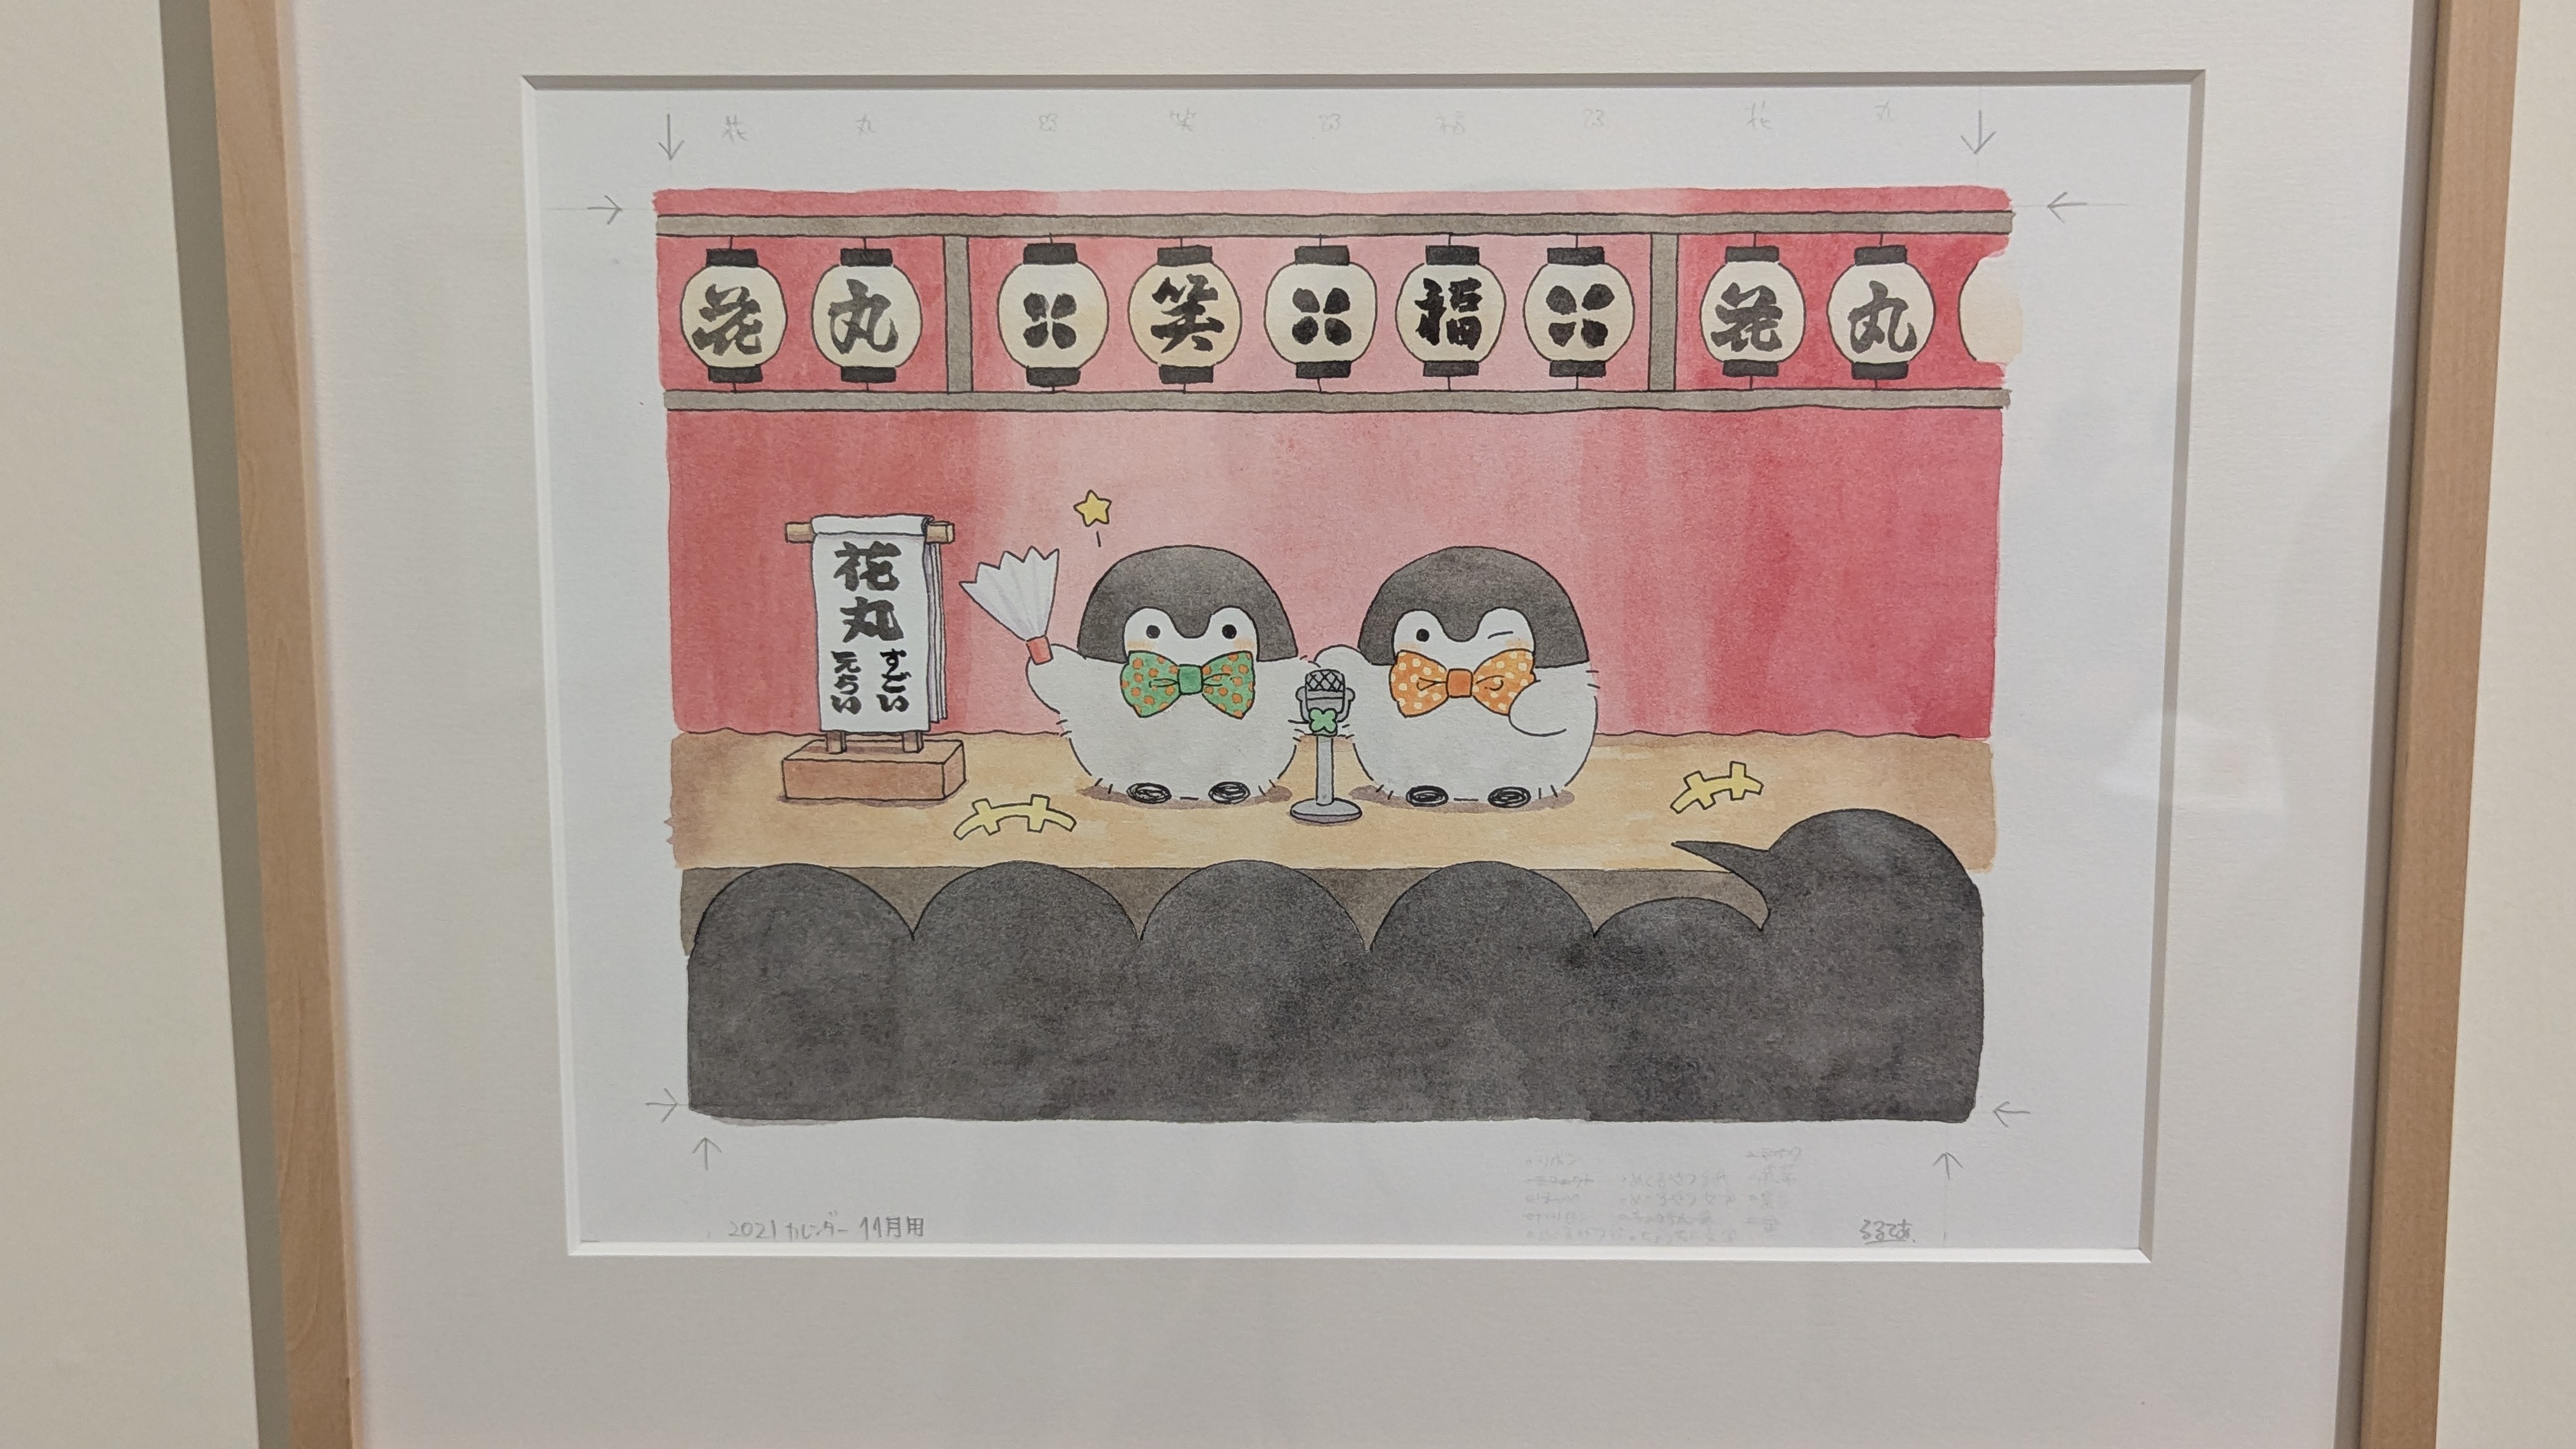 花 丸 笑 福 花 丸
花 丸 笑 福 花 丸
花丸
すごい
えらい
2021 カレンダー 11月用
るるてあ